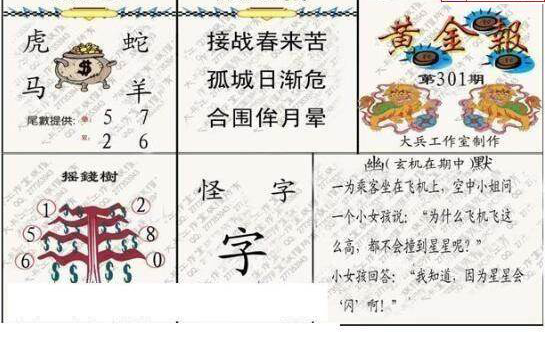 虎 蛇
马 羊
尾數提供: 5 7
2 6
接战春来苦
孤城日渐危
合围侔月晕
黄金報
第301期
大兵工作室制作
摇錢樹
1 2
5 8
6 0
怪 字
字
幽(玄机在期中)默
一为乘客坐在飞机上,空中小姐问
一个小女孩说:“为什么飞机飞这
么高,都不会撞到星星呢?”
小女孩回答:“我知道,因为星星会
‘闪’啊!”